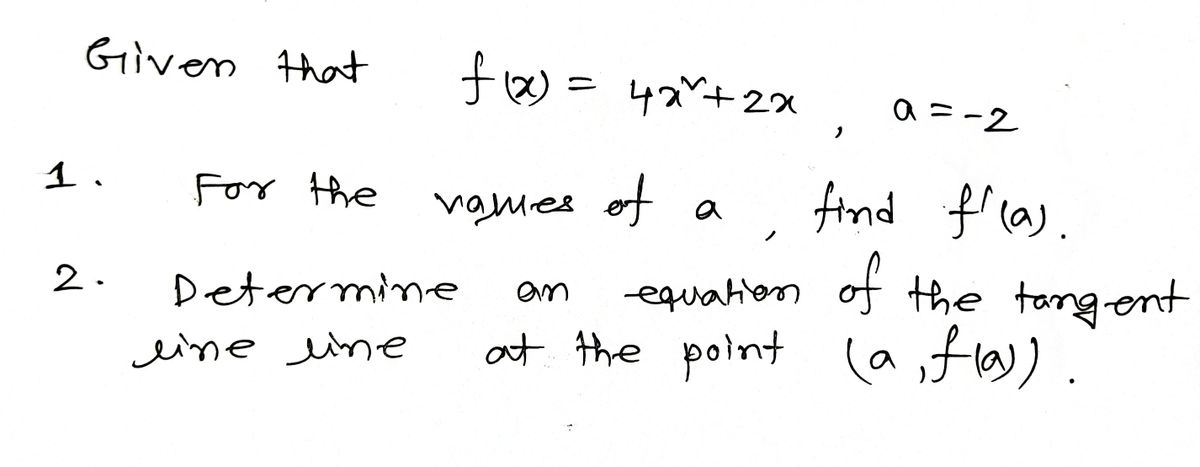 Given that f(x) = 4x²+2x , a = -2
1. For the values of a , find f'(a).
2. Determine an equation of the tangent
line line at the point (a ,f(a)) .